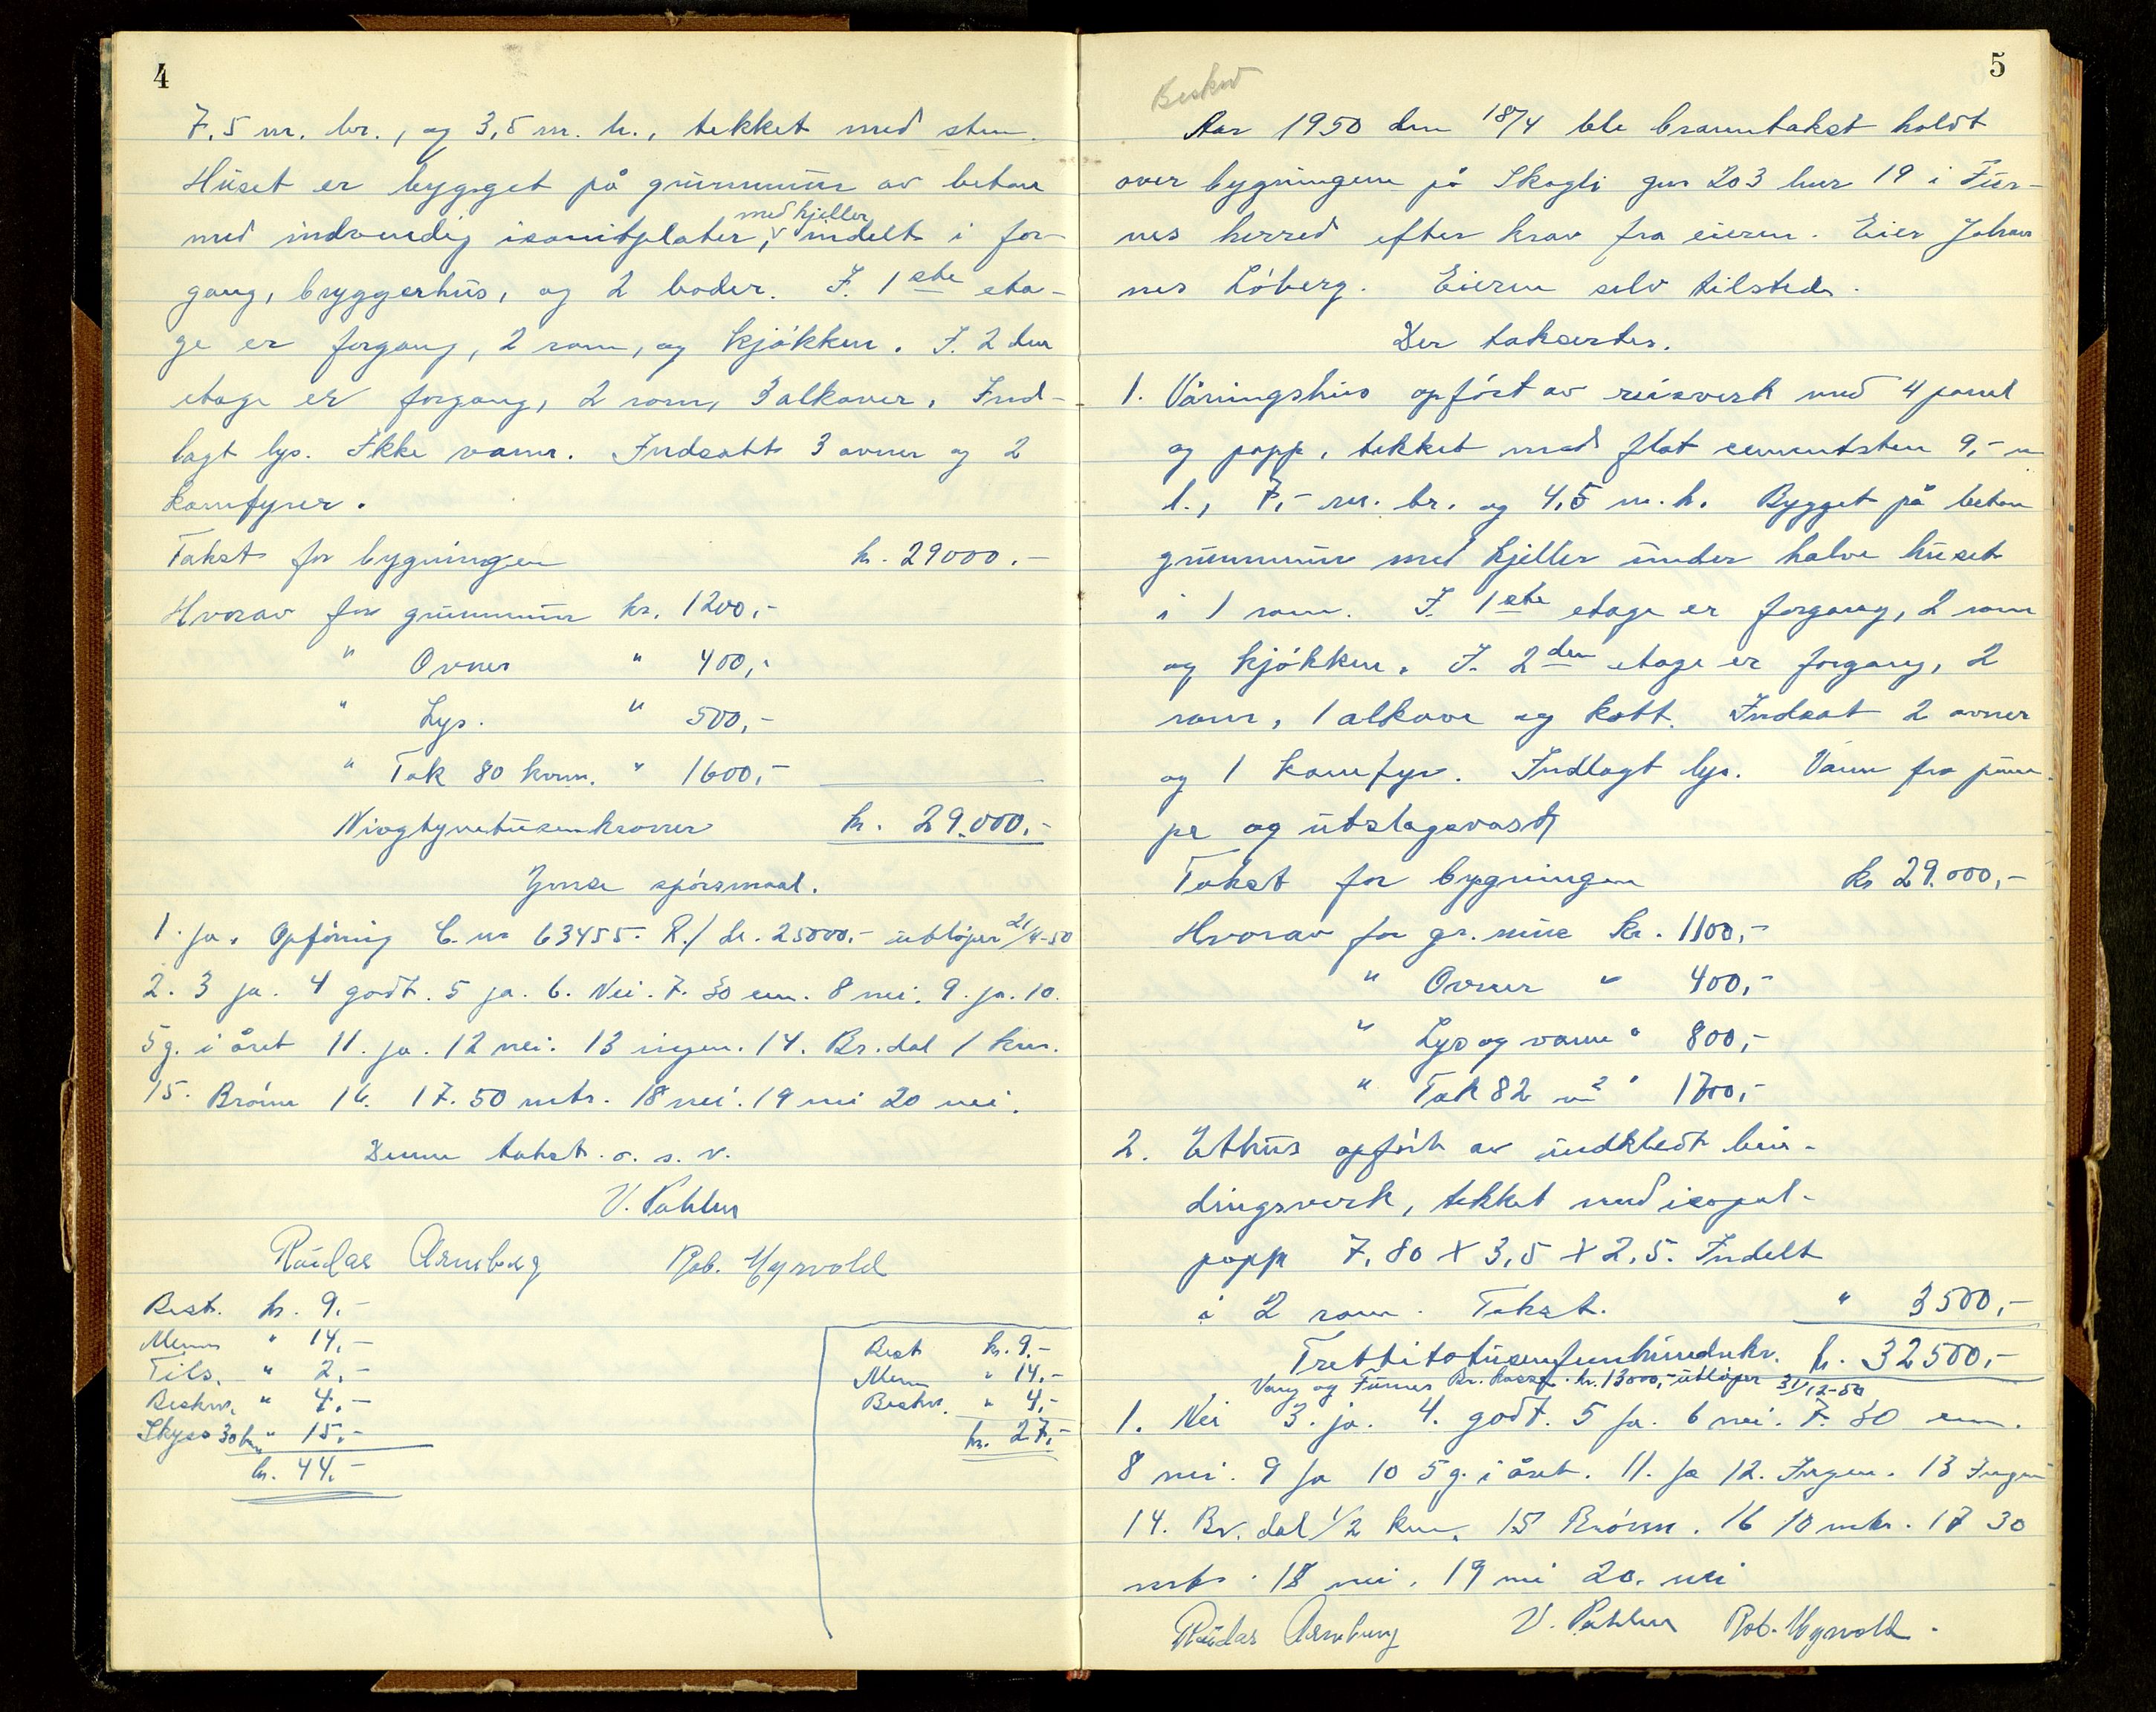 4
7,5 m. br., og 3,5 m. h., tekket med sten.
Huset er bygget på grunnmur av betong
med indvendig isonitplater, med kjeller indelt i for-
gang, bryggerhus, og 2 boder. I. 1ste eta-
ge er forgang, 2 rom, og kjøkken. I. 2den
etage er forgang, 2 rom, 3 alkover, Ind-
lagt lys. Ikke vann. Indsatt 3 ovner og 2
komfyrer.
Takst for bygningen kr. 29000.-
Hvorav for grunnmur kr. 1200,-
" Ovner " 400,-
" Lys. " 500,-
" Tak 80 kvm. " 1600,-
Niogtyvetusenkroner kr. 29.000.-
Jmse spørsmaal.
1. Ja. Opføring C. nr 63455. R./ kr. 25000.- utløper 21/4-50
2. 3 ja. 4 godt. 5 ja. 6. Nei. 7. 30 cm. 8 nei. 9. ja. 10.
5 g. i året 11. ja. 12 nei. 13 ingen. 14. Br.dal 1 km.
15. Brønn 16. 17. 50 mtr. 18 nei. 19 nei 20 nei.
Denne takst. o. s. v.
V. Pahlm
Reidar Arneberg Rob. Myrvold
Best. kr. 9.-
Menn " 14,-
Tils. " 2,-
Beskr. " 4,-
Skyss 30 km " 15.-
kr. 44.-
Best kr. 9.-
Menn " 14.-
Beskr. " 4,-
kr. 27,-
5
Beskrd
Aar 1950 den 18/4 ble branntakst holdt
over bygningene på Skogli gnr 203 bnr 19 i Fur-
nes herred efter krav fra eieren. Eier Johan-
nes Løberg. Eieren selv tilstede.
Der takserter.
1. Våningshus opført av reisverk med 4 panel
og papp, tekket med flat cementsten 9,- m
l., 7,- m. br. og 4,5 m. h. Bygget på betong
grunnmur med kjeller under halve huset
i 1 rom. I. 1ste etage er forgang, 2 rom
og kjøkken. I. 2den etage er forgang, 2
rom, 1 alkove og kott. Indsat 2 ovner
og 1 komfyr. Indlagt lys. Vann fra pum-
pe og utslagsvask
Takst for bygningen kr 29.000,-
Hvorav for gr. mur kr. 1100,-
" Ovner " 400,-
" Lys og vann " 800,-
" Tak 82 m² " 1700,-
2. Uthus opført av indkledt bin-
dingsverk, tekket med isopal-
papp 7,80 x 3,5 x 2,5. Indelt
i 2 rom. Takst. " 3500,-
Trettitotusenfemhundrekr. kr. 32500,-
Vang og Furnes Br. kasse. kr. 13000,- utløper 31/12-50
1. Nei 3. ja. 4. godt. 5 ja. 6 nei. 7. 30 cm.
8 nei. 9 ja 10 5 g. i året. 11. ja 12. Ingen. 13 Ingen
14. Br. dal 1/2 km. 15 Brønn. 16 10 mtr. 17 30
mtr. 18 nei. 19 nei 20. nei
Reidar Arneberg V. Pahlm Rob. Myrvold.